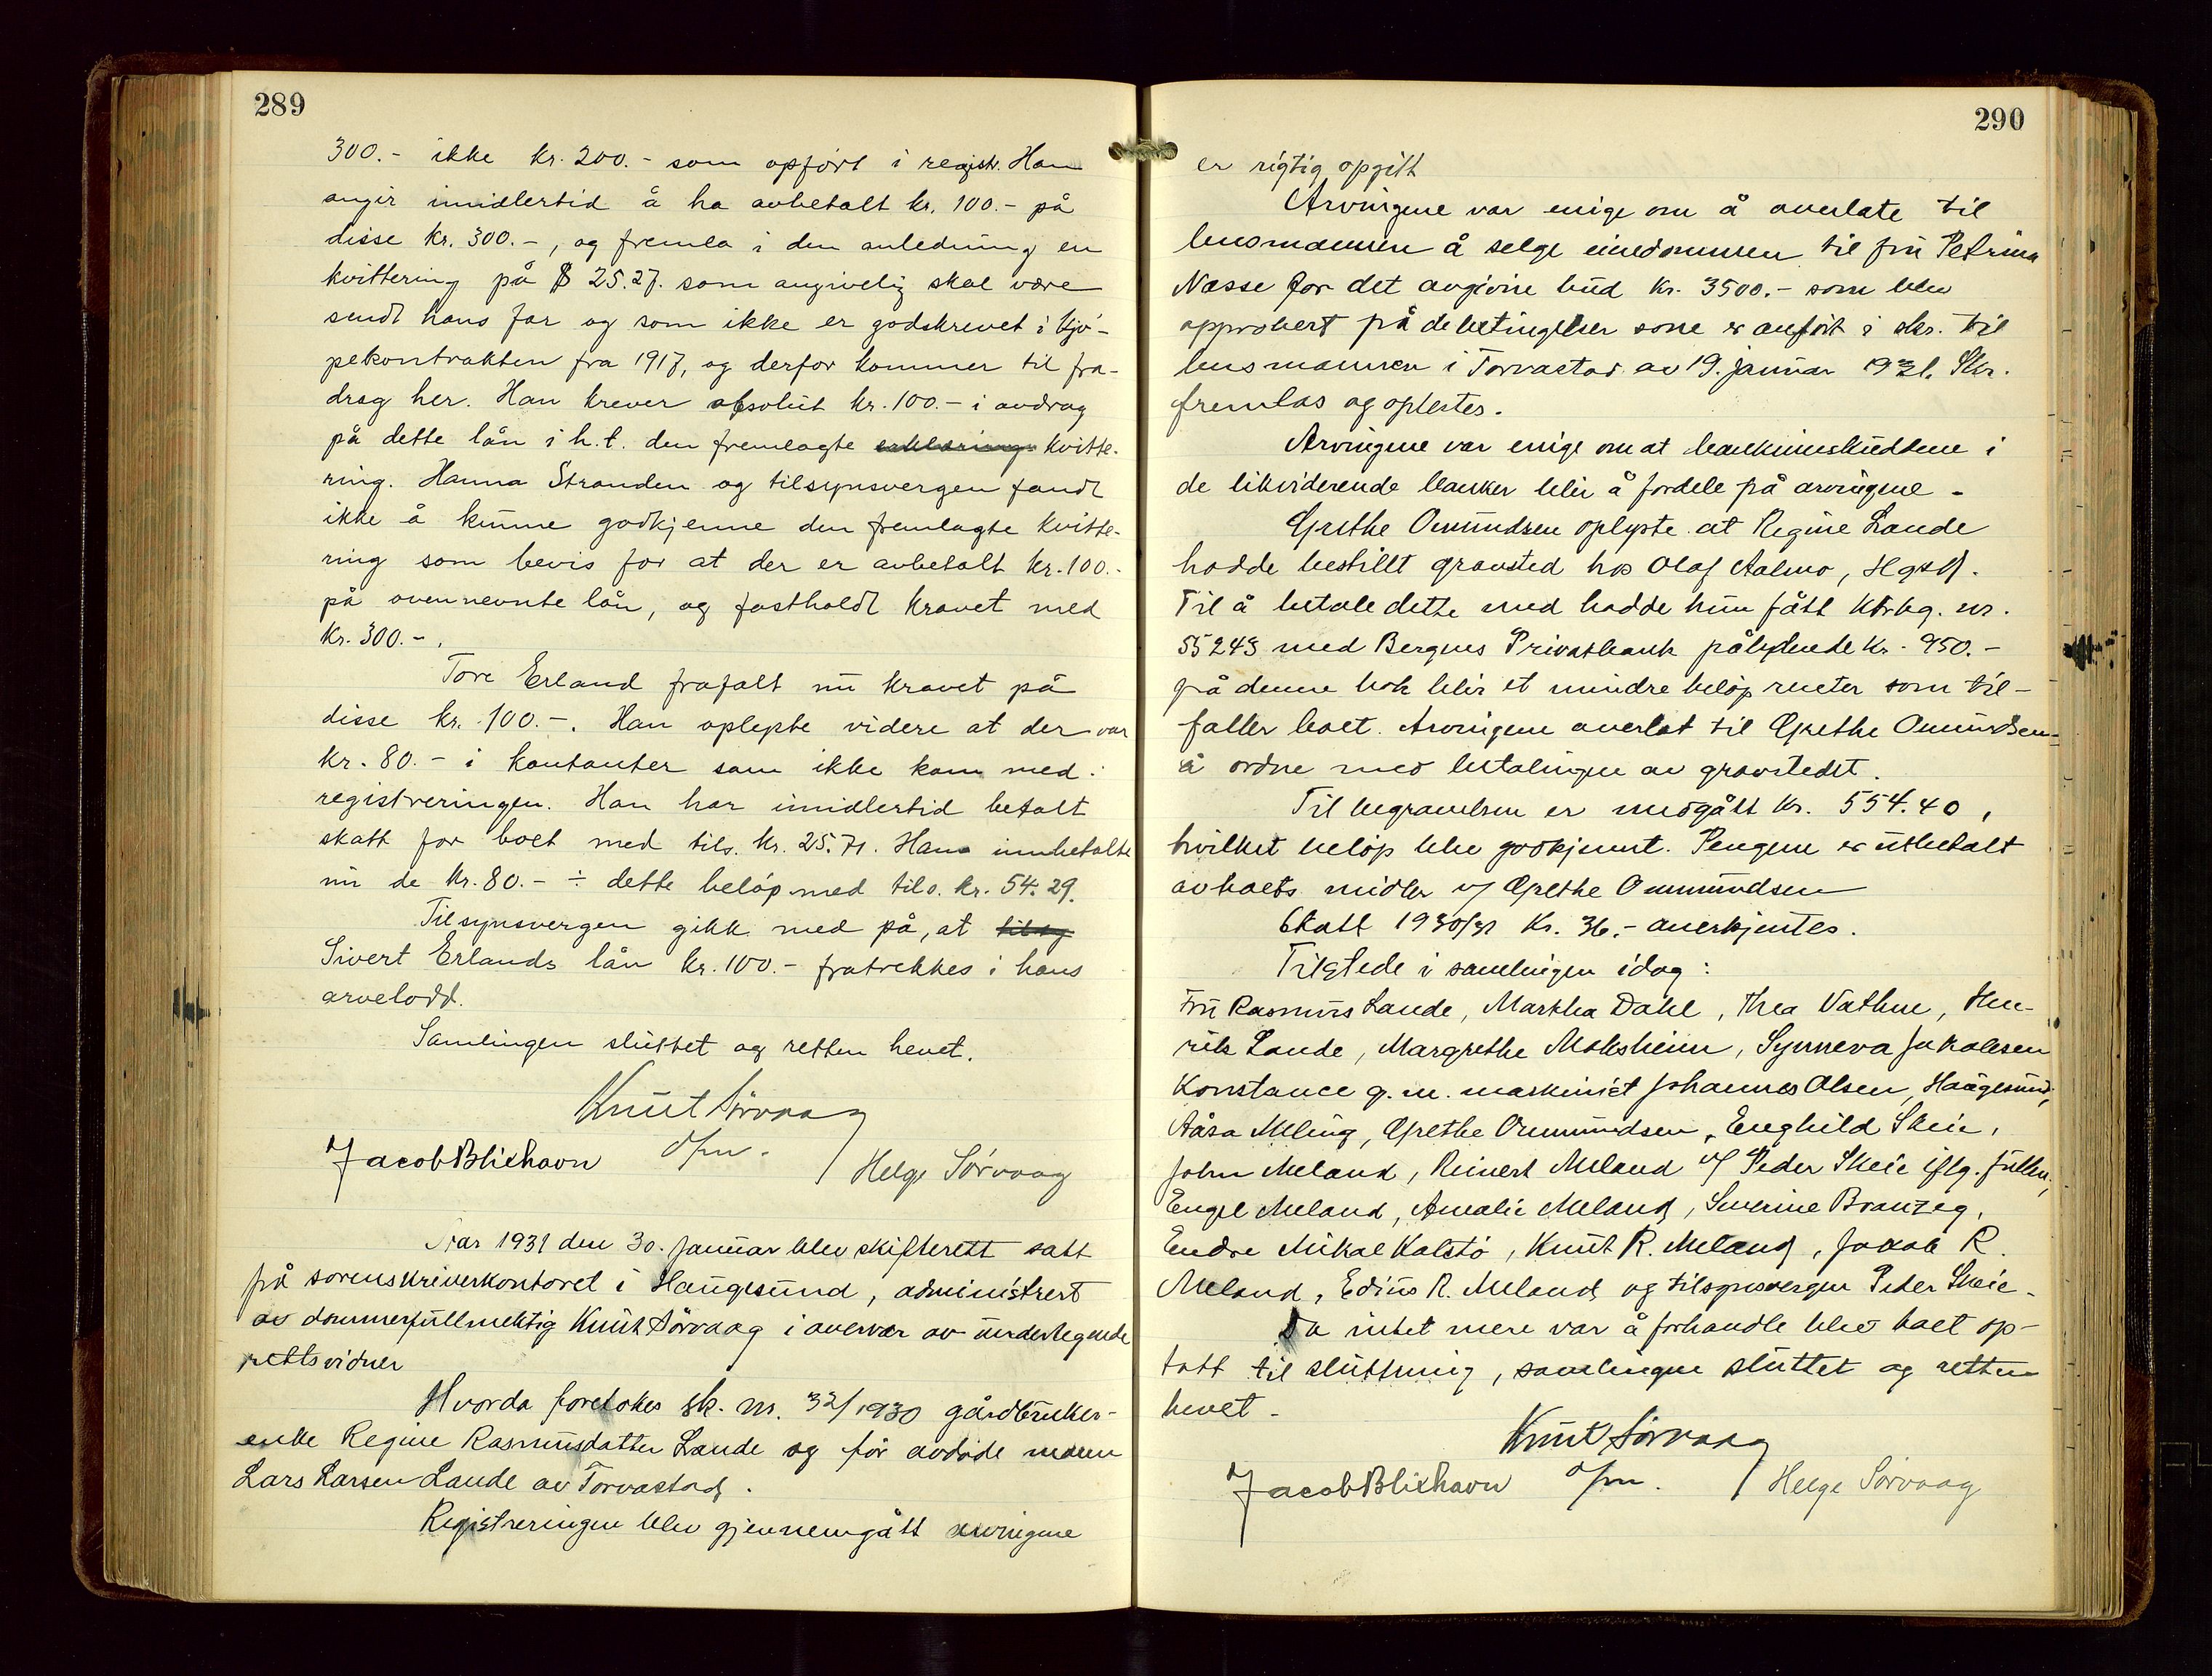 289
300.- ikke kr. 200.- som opført i registr. Han
angir imidlertid å ha avbetalt kr. 100.- på
disse kr. 300.-, og fremla i den anledning en
kvittering på $ 25.27. som angivelig skal være
sendt hans far og som ikke er godskrevet i kjø-
pekontrakten fra 1917, og derfor kommer til fra-
drag her. Han krever absolut kr. 100.- i avdrag
på dette lån i h.t. den fremlagte erklæring kvitte-
ring. Hanna Stranden og tilsynsvergen fandt
ikke å kunne godkjenne den fremlagte kvitte-
ring som bevis for at der er avbetalt kr. 100.-
på ovennevnte lån, og fastholdt kravet med
kr. 300.-.
Tore Erland frafalt nu kravet på
disse kr. 100.-. Han oplyste videre at der var
kr. 80.- i kontanter som ikke kom med i
registreringen. Han har imidlertid betalt
skatt for boet med tils. kr. 25.71. Han innbetalte
nu de kr. 80.- ÷ dette beløp med tils. kr. 54.29.
Tilsynsvergen gikk med på, at
Sivert Erlands lån kr. 100.- fratrekkes i hans
arvelodd.
Samlingen sluttet og retten hevet.
Knut Sørvaag
Jacob Blikhavn d/fm. / Helge Sørvaag
År 1931 den 30. januar blev skifterett satt
på sorenskriverkontoret i Haugesund, administrert
av dommerfullmektig Knut Sørvaag i overvær av undertegnede
rettsvidner
Hvorda foretokes sk. nr. 32/1930 gårdbruker-
enke Regine Rasmusdatter Lande og før avdøde mann
Lars Larsen Lande av Torvastad.
Registreringen blev gjennemgått arvingene
290
er rigtig opgitt
Arvingene var enige om å overlate til
lensmannen å selge eiendommen til fru Petrina
Næsse for det avgivne bud kr. 3500.- som blev
approbert på de betingelser som er anført i skr. til
lensmannen i Torvastad av 19. januar 1931. Skr.
fremlas og oplestes.
Arvingene var enige om at bankinnskuddene i
de likviderende banker blir å fordele på arvingene.
Grethe Omundsen oplyste at Regine Lande
hadde bestillt gravsted hos Olaf Aalmo, Hgsd.
Til å betale dette med hadde hun fått nr.
55243 med Bergens Privatbank pålydende kr. 950.-
på denne bok blir et mindre beløp renter som til-
faller boet. Arvingene overlot til Grethe Omundsen
å ordne med betalingen av gravstedet.
Til begravelsen er medgått kr. 554.40,
hvilket beløp blev godkjennt. Pengene er utbetalt
av boets midler v/ Grethe Ommundsen
Skatt 1930/31 kr. 36.- anerkjentes.
Tilstede i samlingen idag:
Fru Rasmus Lande, Martha Dahl, Thea Vathne, Hen-
rik Lande, Margrethe Moksheim, Synneva Jakobsen
Konstance g.m. maskinist Johannes Olsen, Haugesund,
Aåsa Meling, Grethe Ommundsen, Enghild Skeie,
John Meland, Reinert Meland v/ Peder Skeie iflg. fullm.,
Engel Meland, Amalie Meland, Severine Branzeg,
Endre Mikal Kalstø, Knut R. Meland, Jakob R.
Meland, Edius R. Meland og tilsynsvergen Peder Skeie.
Da intet mere var å forhandle blev boet op-
tatt til sluttning, samlingen sluttet og retten
hevet.
Knut Sørvaag
Jacob Blikhavn d/fm. / Helge Sørvaag